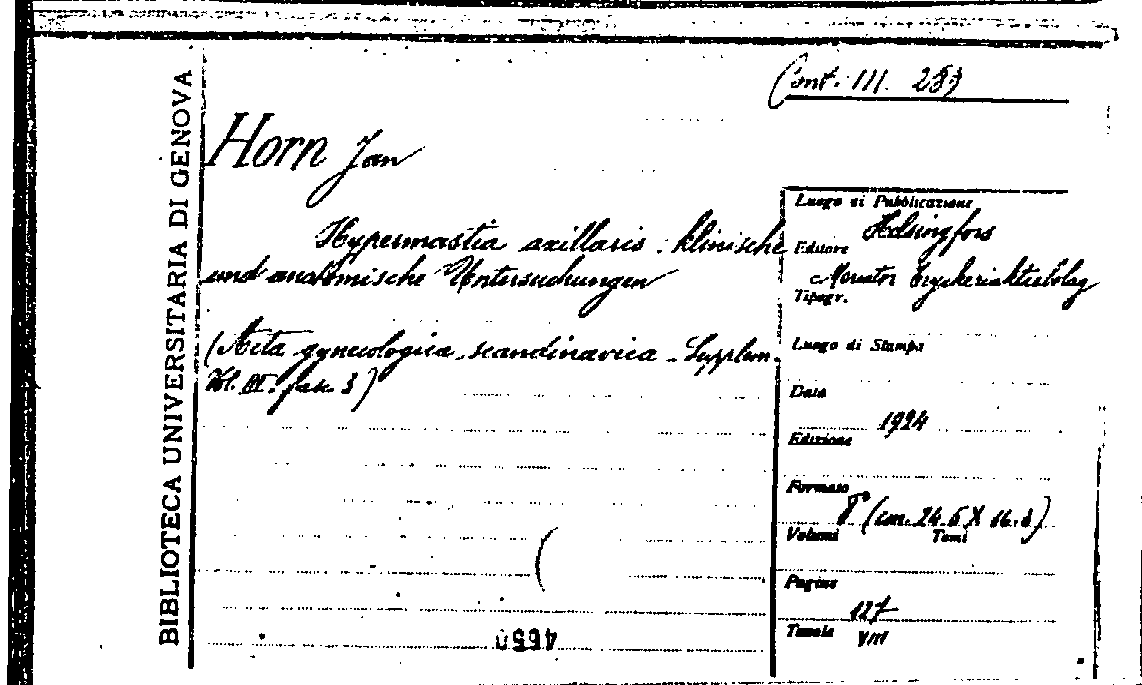 Cont. III. 233
BIBLIOTECA UNIVERSITARIA DI GENOVA
Horn Jan
Hypermastia axillaris : klinische
und anatomische Untersuchungen
(Acta gynecologica scandinavica - Supplem.
Vol. III. fasc. 3)
Luogo di Pubblicazione
Helsingfors
Editore
Mercator Tryckeriaktiebolag
Tipogr.
Luogo di Stampa
Data
1924
Edizione
Formato
8° (cm. 24.5 X 16.3)
Volumi Tomi
Pagine
127
Tavole
VIII
4650